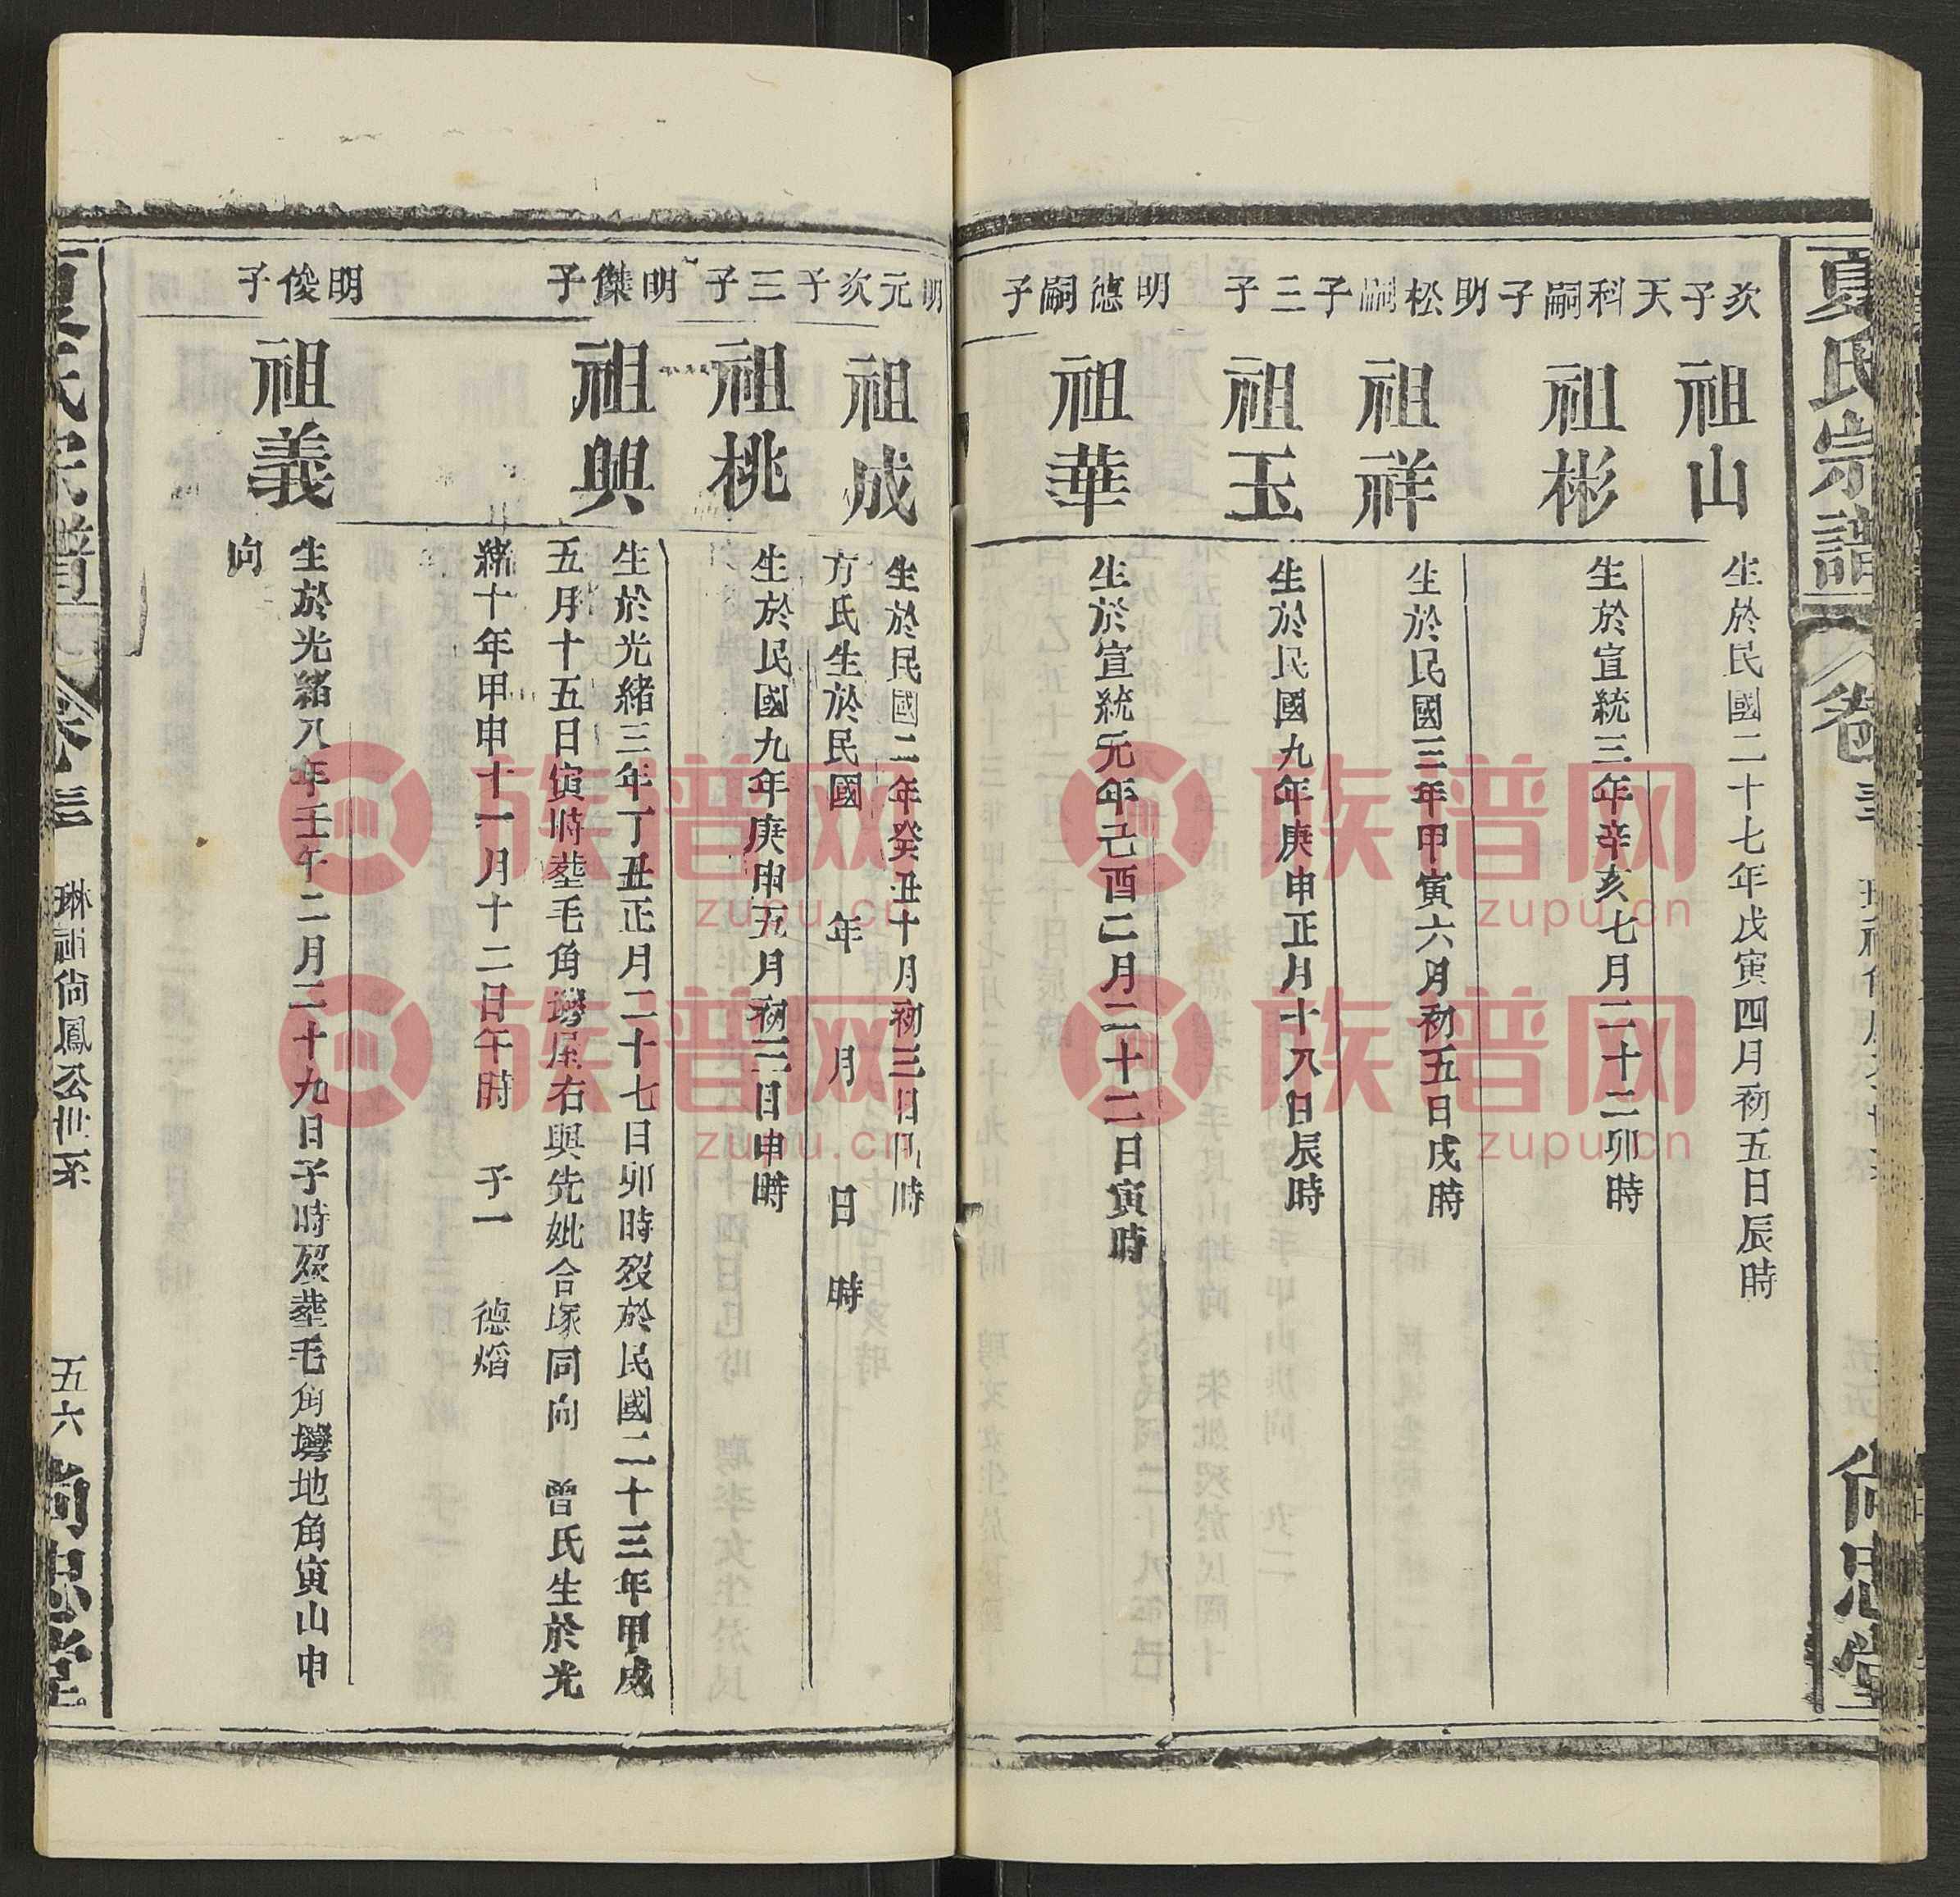 夏氏宗譜
卷三
尚忠堂
次子
祖山
生於民國二十七年戊寅四月初五日辰時
天科嗣子
祖彬
生於宣統三年辛亥七月二十二卯時
明松嗣子
祖祥
生於民國三年甲寅六月初五日戌時
三子
祖玉
生於民國九年庚申正月十八日辰時
明德嗣子
祖華
生於宣統元年己酉二月二十二日寅時
明元次子
祖成
生於民國二年癸丑十月初三日 時
方氏生於民國 年 月 日 時
三子
祖桃
生於民國九年庚申五月初二日申時
明傑子
祖興
生於光緒三年丁丑正月二十七日卯時歿於民國二十三年甲戌
五月十五日寅時塟毛角塆屋右興先妣合塚同向 曾氏生於光
緒十年甲申十一月十二日午時 子一 德熖
明俊子
祖義
生於光緒八年壬午二月二十九日子時歿塟毛角塆地角寅山申
向
夏氏宗譜
卷三
琳祖尙鳳公世系
五六
尚忠堂
族普网
zupu.cn
族普网
zupu.cn
族普网
zupu.cn
族普网
zupu.cn